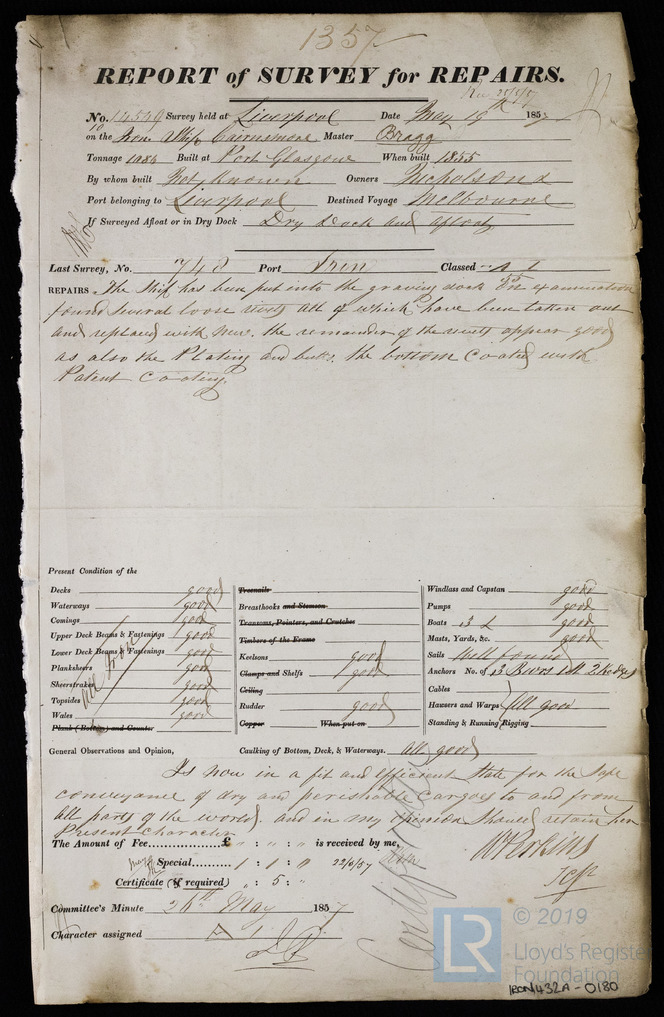 1357
REPORT of SURVEY for REPAIRS.
No. 14539 Survey held at Liverpool Date May 19th 1857
on the Iron Ship Cairnsmore Master Bragg
Tonnage 1084 Built at Port Glasgow When built 1855
By whom built Not Known Owners Nicholson &
Port belonging to Liverpool Destined Voyage Melbourne
If Surveyed Afloat or in Dry Dock Dry Dock and afloat
Last Survey, No. 748 Port Iron Classed A 1
REPAIRS. The Ship has been put into the graving dock on examination
found several loose rivets all of which have been taken out
and replaced with new. the remainder of the rivets appear good
as also the Plating and butts. the bottom Coated with
Patent Coating.
Present Condition of the
Decks good
Waterways good
Comings good
Upper Deck Beams & Fastenings good
Lower Deck Beams & Fastenings good
Planksheers good
Sheerstrakes good
Topsides good
Wales good
Plank (Bottom) and Counter
all Iron
Treenails
Breasthooks and Stemson
Transoms, Pointers, and Crutches
Timbers of the Frame
Keelsons good
Clamps and Shelfs good
Ceiling
Rudder good
Copper When put on
Windlass and Capstan good
Pumps good
Boats good
Masts, Yards, &c. good
Sails Well found
Anchors No. of 3 Bowers 1 St 2 Kedges
Cables
Hawsers and Warps all good
Standing & Running Rigging
General Observations and Opinion, Caulking of Bottom, Deck, & Waterways. all good
Is now in a fit and efficient state for the safe
conveyance of dry and perishable Cargoes to and from
all parts of the world and in my opinion should retain her
Present Character
The Amount of Fee £ " : " : " is received by me,
Special 1 : 1 : " 22/5/57
W Perkins
Certificate (if required) " : 5 : "
Committee's Minute 26th May 1857
Character assigned A 1
LR
© 2019
Lloyd's Register
Foundation
IRON432A-0180